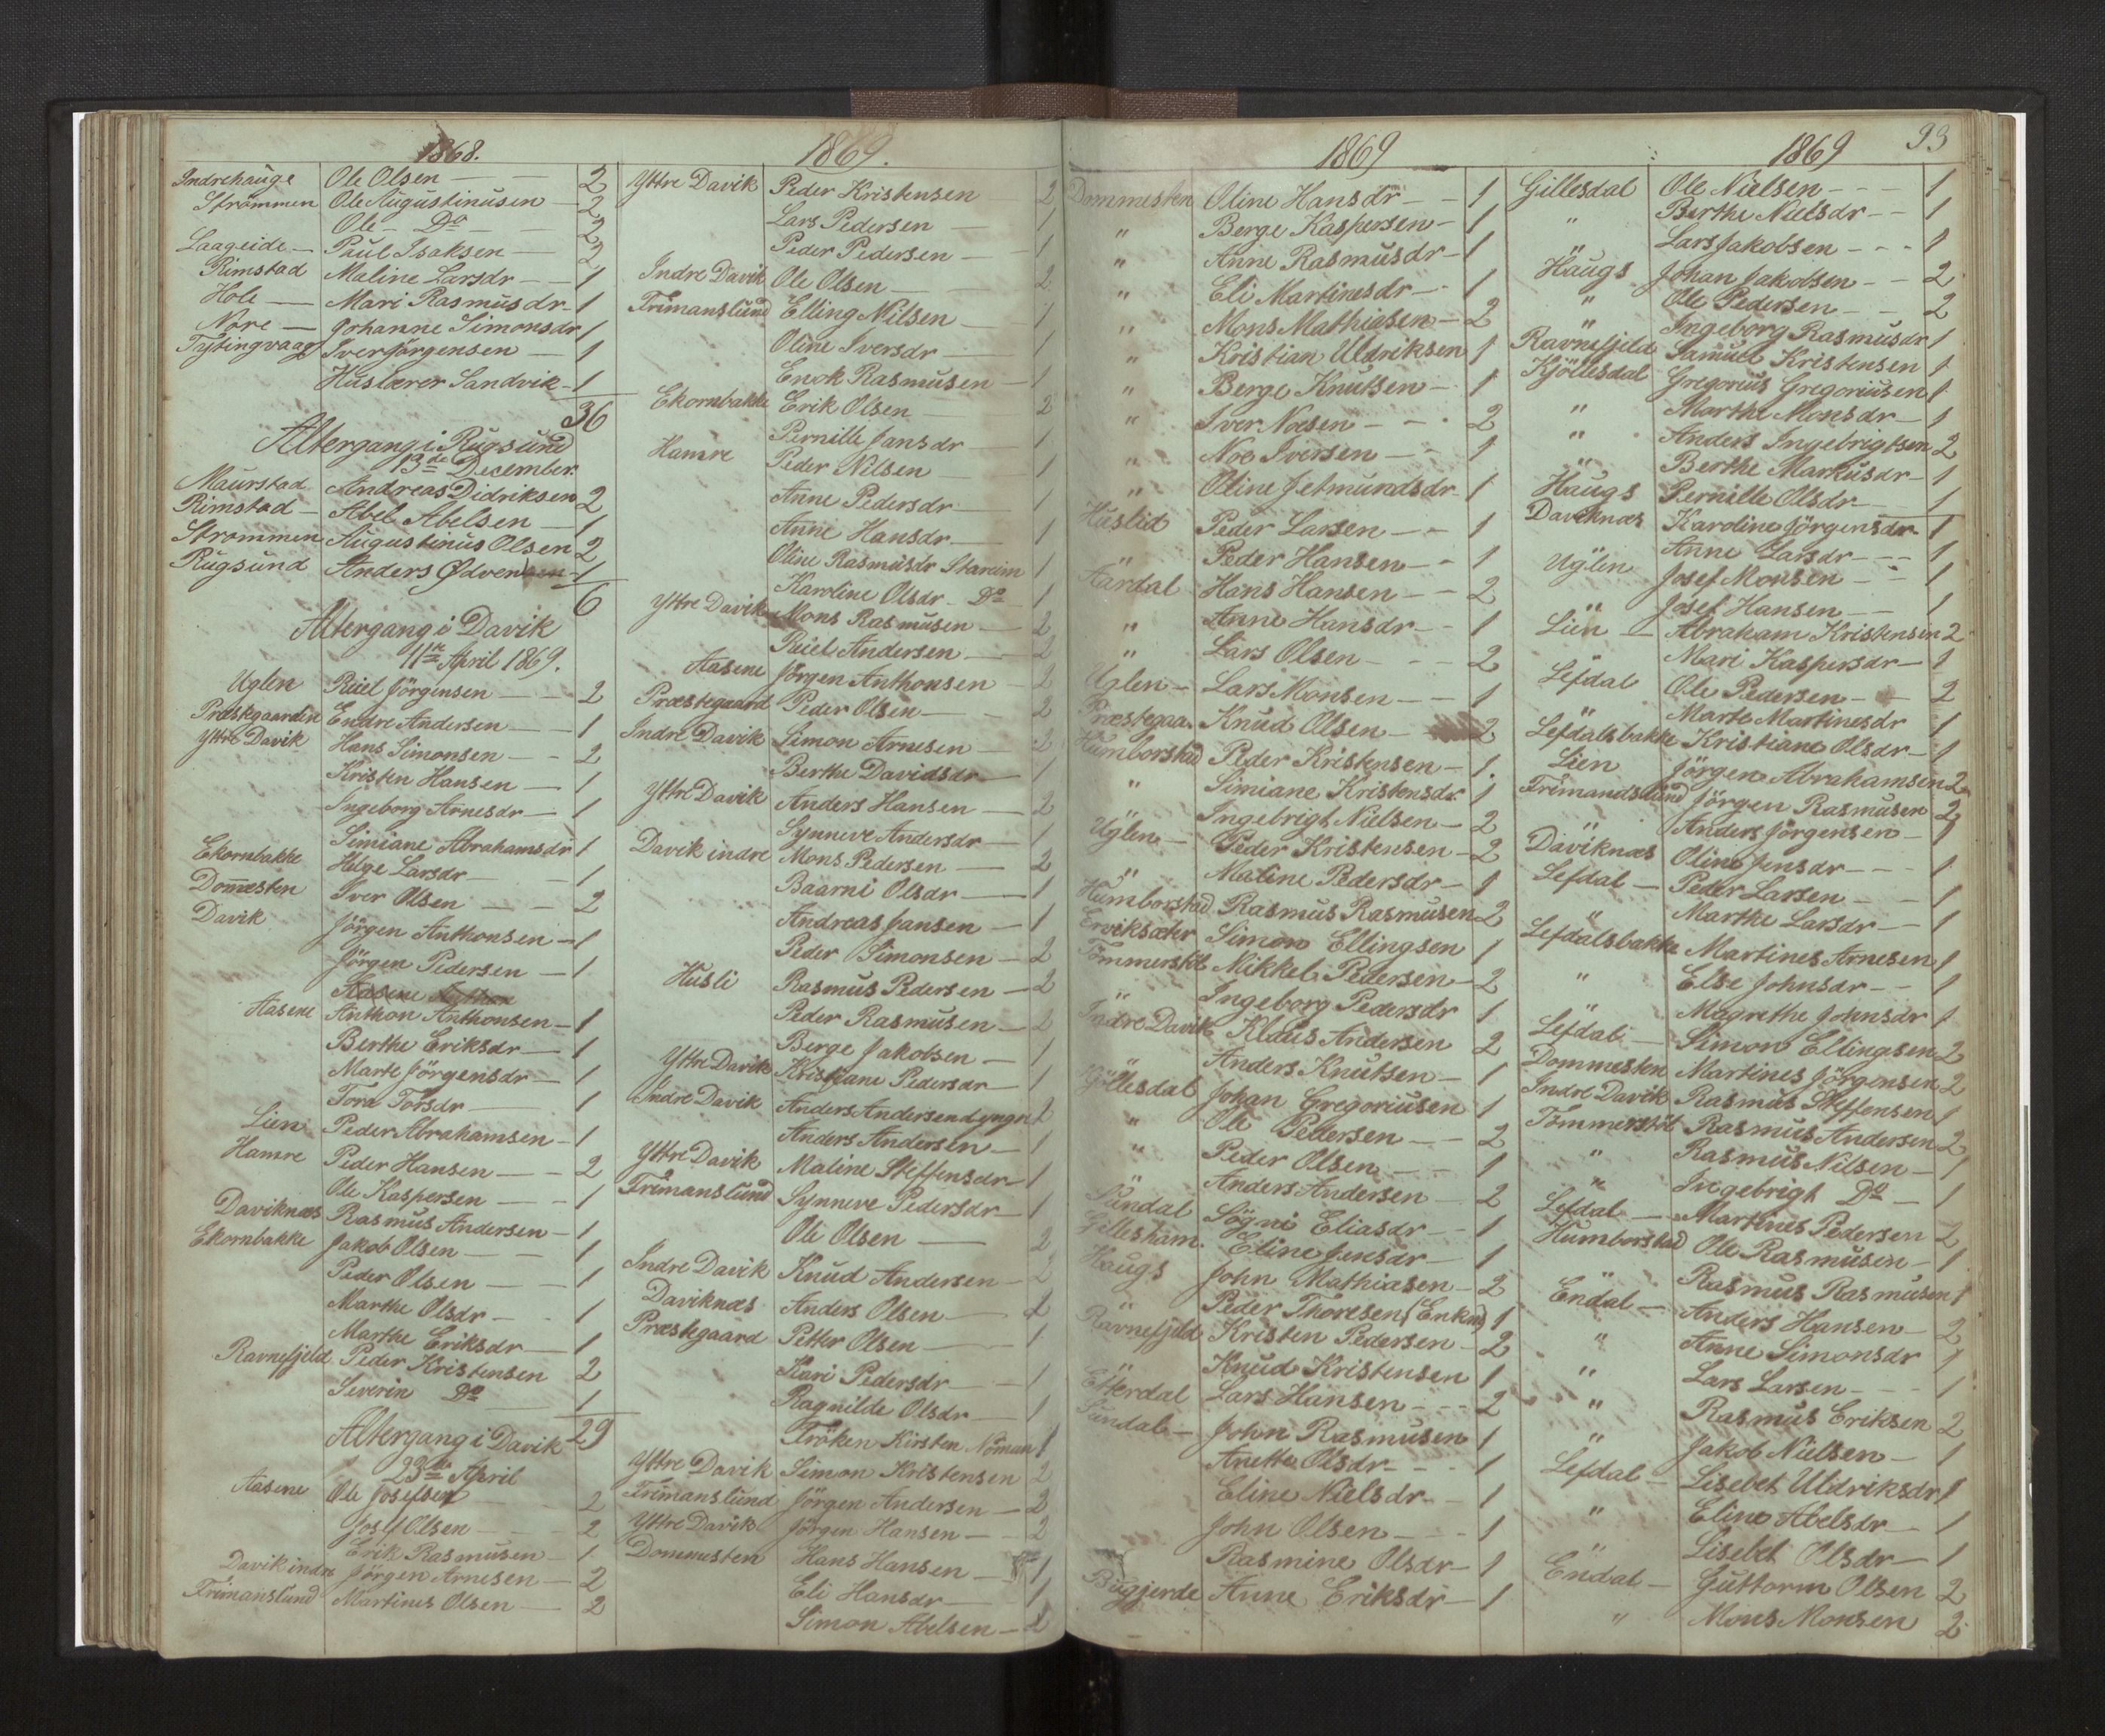 1868.
Indrehauge Ole Olsen - - 2
Strömmen Ole Augustinusen - 2
Ole - Do - - 2
Laageide - Paul Isaksen - 2
Rimstad Maline Larsdr - - 1
Hole - Mari Rasmusdr - 1
Nore - Johanne Simonsdr 1
Tytingvaag Iver Jörgensen - 1
Huslærer Sandvik - 1
36
Altergang i Rugsund
13de December.
Maurstad Andreas Didriksen 2
Rimstad - Abel Abelsen - 1
Strömmen Augustinus Olsen 2
Rugsund Anders Ødvensen - 1
6
Altergang i Davik
11te April 1869.
Uglen Riiel Jörgensen - - 2
Præstegaarden Endre Andersen - - 1
Yttre Davik Hans Simonsen - - 2
Kristen Hansen - 1
Ingeborg Arnesdr - 1
Simiane Abrahamsdr 1
Ekornbakke Helge Larsdr - - 1
Dommesten Iver Olsen - - 2
Davik Jörgen Anthonsen - 1
Jörgen Pedersen - 1
Aasene Anthon Anthonsen - 1
Berthe Eriksdr - 1
Marte Jörgensdr - 1
Tora Torsdr - 1
Lien Peder Abrahamsen - 1
Hamre Peder Hansen - - 2
Ole Kaspersen - - 1
Daviknæs Rasmus Andersen - 1
Ekornbakke Jakob Olsen - - 1
Peder Olsen - - 1
Marthe Olsdr - - 1
Marthe Eriksdr - 1
Ravnefjeld Peder Kristensen 2
Severin Do 1
29
Altergang i Davik
23de April
Aasene Ole Josefsen 2
Josef Olsen - - 2
Erik Rasmusen - 1
Davik indre Jörgen Arnesen - 2
Frimanslund Martines Olsen - 2
1869.
Yttre Davik Peder Kristensen 2
Lars Pedersen - 1
Peder Pedersen - 1
Indre Davik Ole Olsen - 2
Frimanslund Elling Nilsen - 1
Oline Iversdr - 1
Enok Rasmusen - 1
Ekornbakke Erik Olsen - 2
Pernille Jansdr - 1
Hamre Peder Nilsen - 1
Anne Pedersdr - 1
Anne Hansdr - 1
Oline Rasmusdr Stareim 1
Karoline Olsdr - Do - 1
Yttre Davik Mons Rasmusen - 2
Riiel Andersen - 2
Aasene Jörgen Anthonsen - 2
Præstegaard Peder Olsen - 2
Indre Davik Simon Arnesen - 2
Berthe Davidsdr - 1
Yttre Davik Anders Hansen - 2
Synneve Andersdr - 1
Davik indre Mons Pedersen - 2
Baarni Olsdr - 1
Andreas Jansen - 1
Peder Simonsen - 2
Husli Rasmus Pedersen - 2
Peder Rasmusen - 2
Berge Jakobsen - 1
Yttre Davik Kristiane Pedersdr - 1
Indre Davik Anders Andersen d yngr 1
Anders Andersen - 1
Yttre Davik Maline Steffensdr - 1
Frimanslund Synneve Pedersdr - 1
Ole Olsen - 2
Indre Davik Knud Andersen - 2
Daviknæs Anders Olsen - 2
Præstegaard Petter Olsen - 1
Kari Pedersdr - 1
Ragnilde Olsdr - 1
Fröken Kirsten Nöman 1
Yttre Davik Simon Kristensen 2
Frimanslund Jörgen Andersen - 2
Yttre Davik Jörgen Hansen - 2
Dommesten Hans Hansen - 1
Eli Hansdr - 1
Simon Abelsen - 2
1869
Dommesten Oline Hansdr - - 1
" Berge Kaspersen - 1
" Anne Rasmusdr - 1
" Eli Martinesdr - 1
" Mons Mathiasen - 2
" Kristian Uldriksen 1
" Berge Knutsen - 1
" Iver Noesen - - 2
" Noe Iversen - - 1
" Oline Jetmundsdr - 1
Huslid Peder Larsen - - 1
" Peder Hansen - - 1
Aardal Hans Hansen - - 2
" Anne Hansdr - - 1
" Lars Olsen - - 2
Uglen - Lars Monsen - - 1
Præstegaa. Knud Olsen - 2
Humborstad Peder Kristensen - 1.
" Simiane Kristensdr 1
Ingebrigt Nielsen - 2
Uglen - Peder Kristensen - 2
" Maline Pedersdr - 1
Humborstad Rasmus Rasmusen 2
Erviksæter Simon Ellingsen 1
Tömmerstöl Nikkel Pedersen - 2
" Ingeborg Pedersdr 1
Indre Davik Klaus Andersen 2
" Anders Knutsen - 1
Gjöllesdal Johan Gregoriusen 1
" Ole Pedersen - - 2
" Peder Olsen - - 1
" Anders Andersen 2
Sundal Sögni Eliasdr - 1
Gillesham. Eline Jensdr - 1
Haugs John Mathiasen - 2
" Peder Thoresen (Enkm) 1
Ravnefjeld Kristen Pedersen - 2
" Knud Kristensen 1
Etterdal Lars Hansen - - 2
Sundal - John Rasmusen 1
Anette Olsdr - - 1
Eline Nielsdr - 1
John Olsen - - 1
Rasmine Olsdr - 1
Bugjerde Anne Eriksdr - 1
1869 93
Gillesdal Ole Nielsen - - - 1
" Berthe Nielsdr - - 1
Lars Jakobsen - - - 1
Haugs Johan Jakobsen - - 2
" Ole Pedersen - - 2
" Ingeborg Rasmusdr 1
Ravnefjeld Samuel Kristensen 1
Kjöllesdal Gregorius Gregoriusen 1
" Marthe Monsdr - 1
" Anders Ingebrigtsen 2
" Berthe Markusdr - 1
Haugs Pernille Olsdr - 1
Daviknæs Karoline Jörgensdr 1
Anne Larsdr - - - 1
Uglen Josef Monsen - - 1
" Josef Hansen - - 1
Lien - Abraham Kristensen 2
" Mari Kaspersdr - 1
Lefdal Ole Pedersen - 2
" Marte Martinesdr 1
Lefdalsbakke Kristiane Olsdr - 1
Lien Jörgen Abrahamsen 2
Frimandslund Jörgen Rasmusen 2
" Anders Jörgensen - 1
Daviknæs Oline Jensdr - - - 1
Lefdal - Peder Larsen - - 1
" Marthe Larsdr - - 1
Lefdalsbakke Martines Arnesen 1
" Else Johnsdr - - 1
" Magrethe Johnsdr 1
Lefdal - Simon Ellingsen 2
Dommesten Martines Jörgensen 2
Indre Davik Rasmus Steffensen 1
Tömmerstöl Rasmus Andersen 2
" Rasmus Nilsen - 1
" Ingebrigt Do - 1
Lefdal - Martines Pedersen 2
Humborstad Ole Rasmusen - 1
" Rasmus Rasmusen 1
Endal - Anders Hansen - 2
" Anne Simonsdr 1
" Lars Larsen - - 1
" Rasmus Eriksen 2
" Jakob Nielsen - 1
Lefdal - Lisebet Uldriksdr 1
" Eline Abelsdr - 1
" Lisebet Olsdr - 1
Endal - Guttorm Olsen 2
" Mons Monsen 2